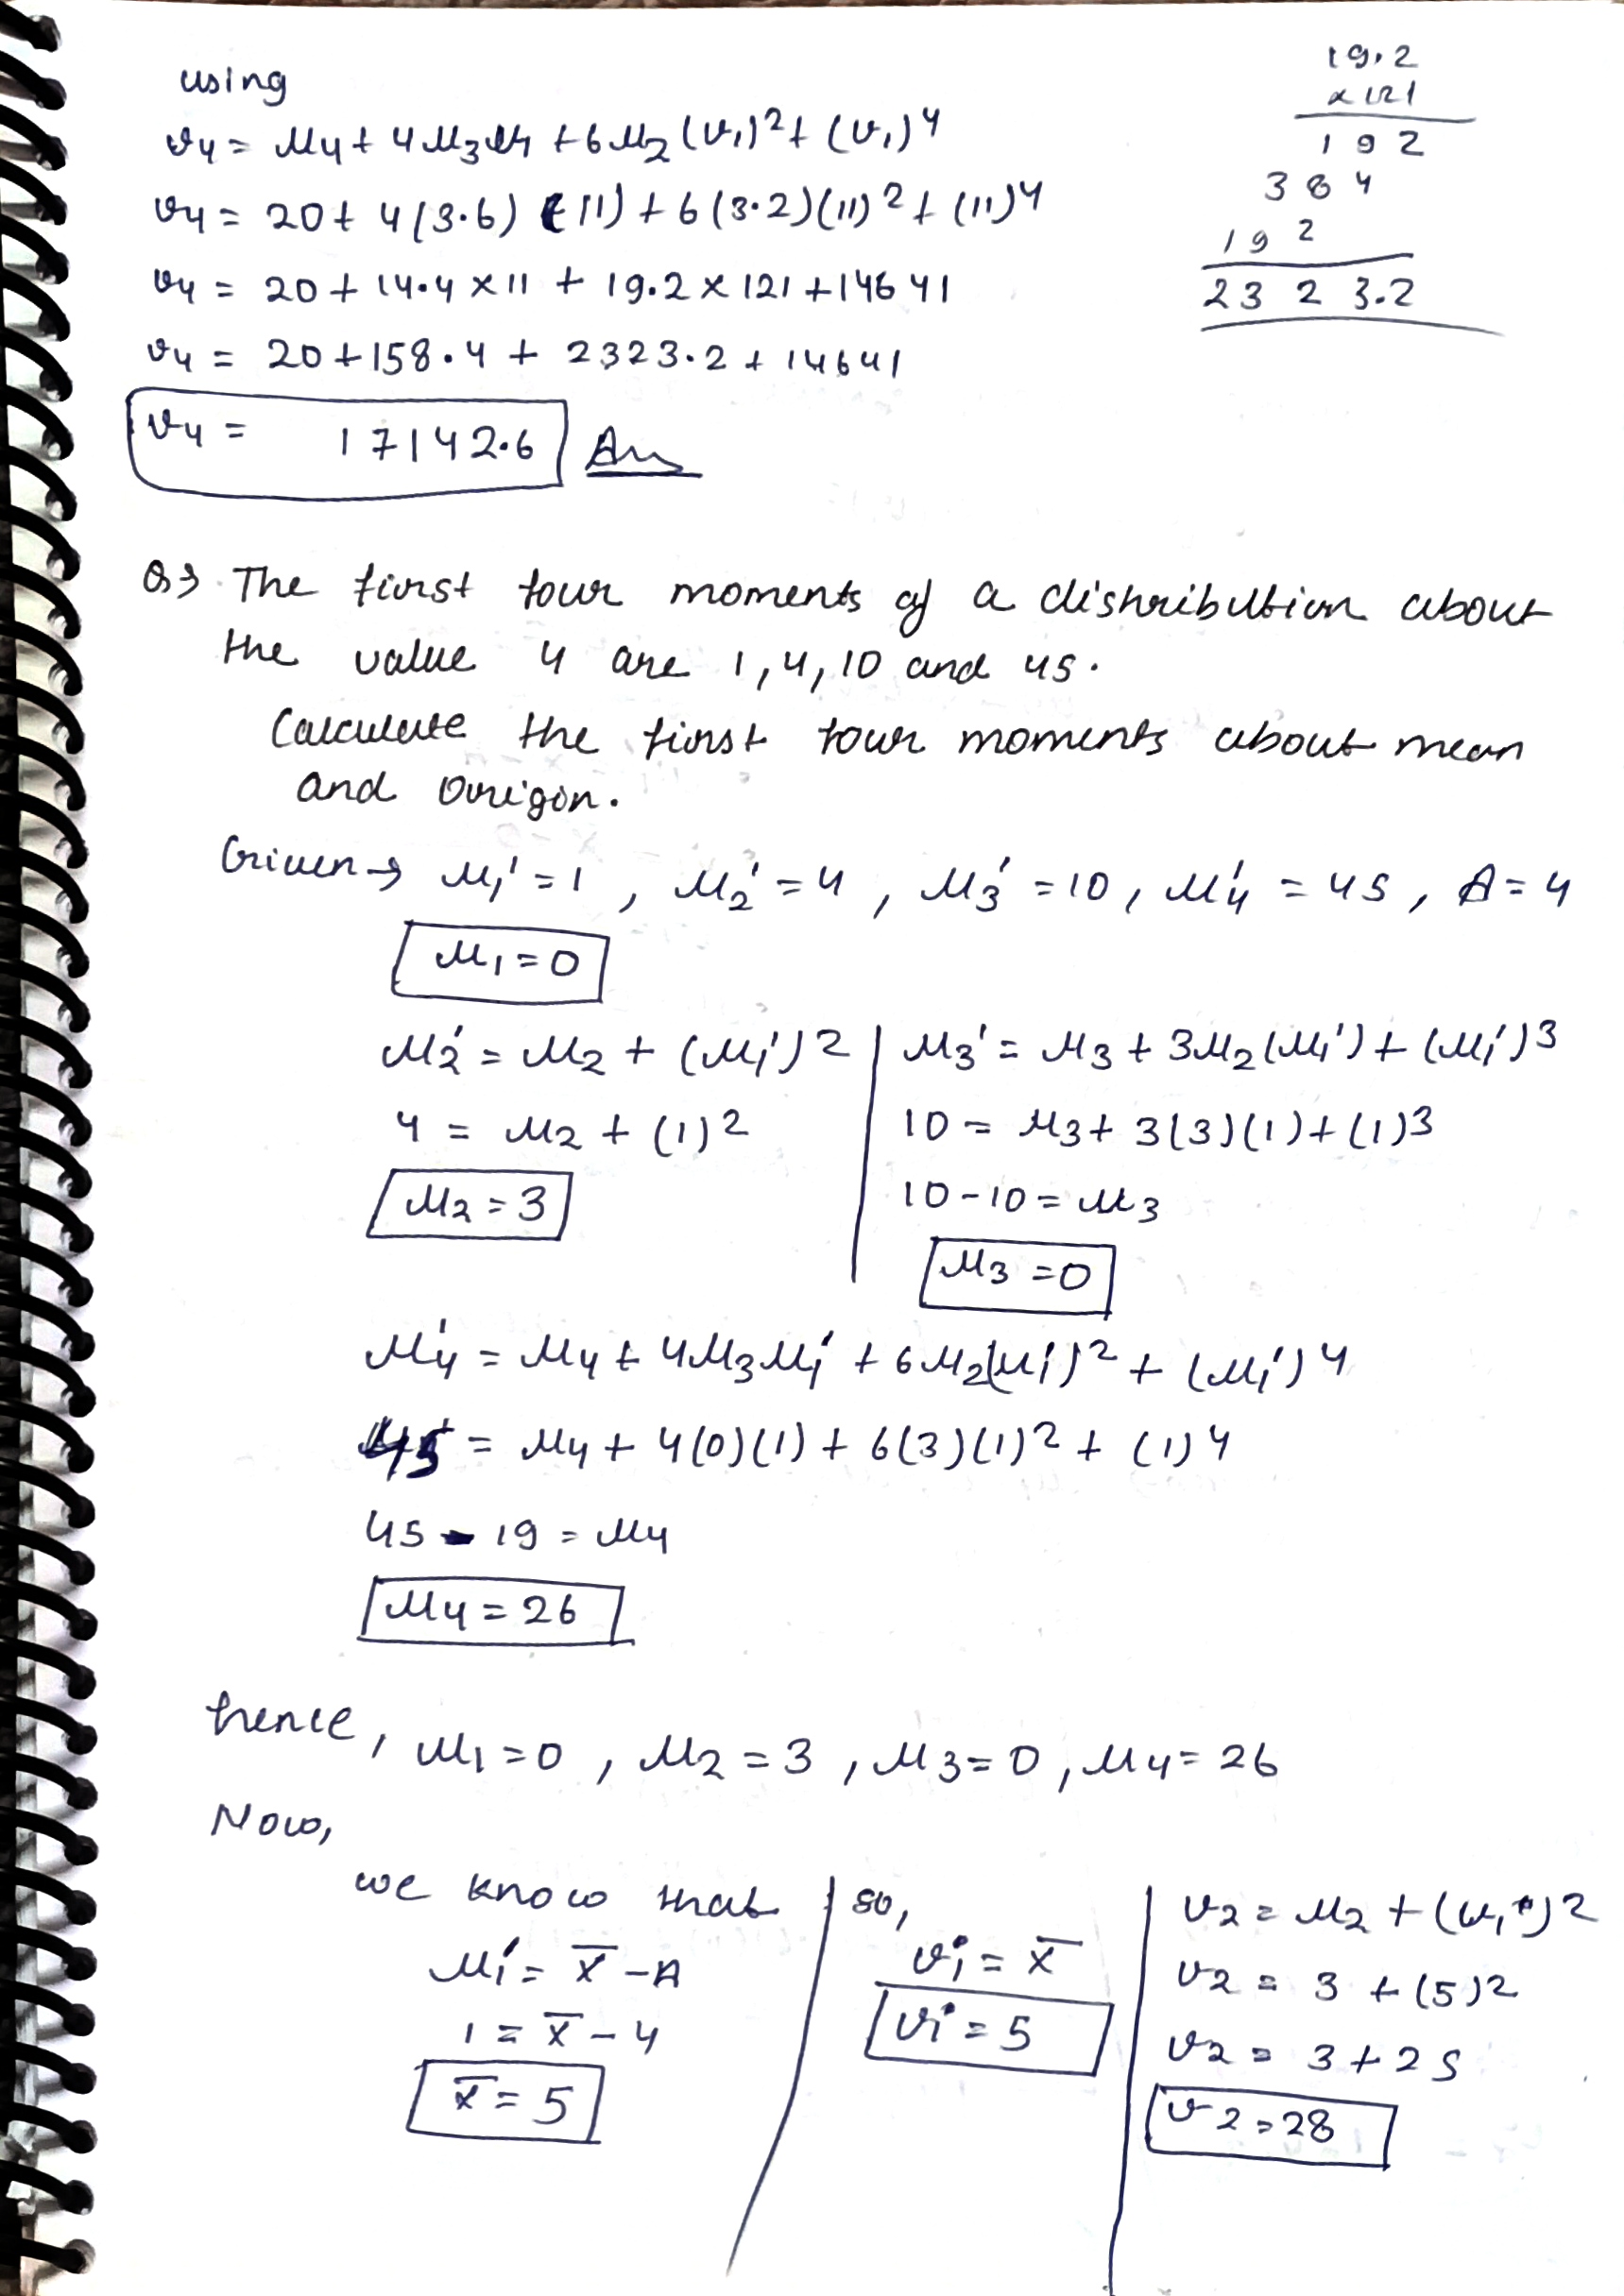 using
v₄ = μ₄ + 4μ₃v₁ + 6μ₂(v₁)² + (v₁)⁴
v₄ = 20 + 4(3.6)(11) + 6(3.2)(11)² + (11)⁴
v₄ = 20 + 14.4 × 11 + 19.2 × 121 + 14641
v₄ = 20 + 158.4 + 2323.2 + 14641
v₄ = 17142.6 Ans
19.2
× 121
1 9 2
3 8 4
1 9 2
23 2 3.2
Q→ The first four moments of a distribution about
the value 4 are 1, 4, 10 and 45.
Calculate the first four moments about mean
and Origin.
Given → μ₁' = 1, μ₂' = 4, μ₃' = 10, μ₄' = 45, A = 4
μ₁ = 0
μ₂' = μ₂ + (μ₁')²
4 = μ₂ + (1)²
μ₂ = 3
μ₃' = μ₃ + 3μ₂(μ₁') + (μ₁')³
10 = μ₃ + 3(3)(1) + (1)³
10 - 10 = μ₃
μ₃ = 0
μ₄' = μ₄ + 4μ₃μ₁' + 6μ₂(μ₁')² + (μ₁')⁴
45 = μ₄ + 4(0)(1) + 6(3)(1)² + (1)⁴
45 - 19 = μ₄
μ₄ = 26
hence, μ₁ = 0, μ₂ = 3, μ₃ = 0, μ₄ = 26
Now,
we know that
μ₁' = x̄ - A
1 = x̄ - 4
x̄ = 5
so,
v₁ = x̄
v₁ = 5
v₂ = μ₂ + (v₁)²
v₂ = 3 + (5)²
v₂ = 3 + 25
v₂ = 28